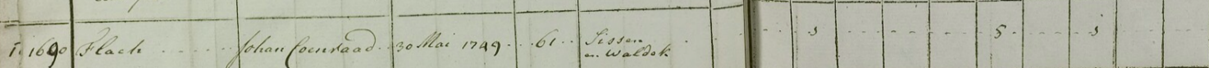 1690 Flach Johan Coenraad 30 Mai 1749 61 Sissen
en Waldek
s s s